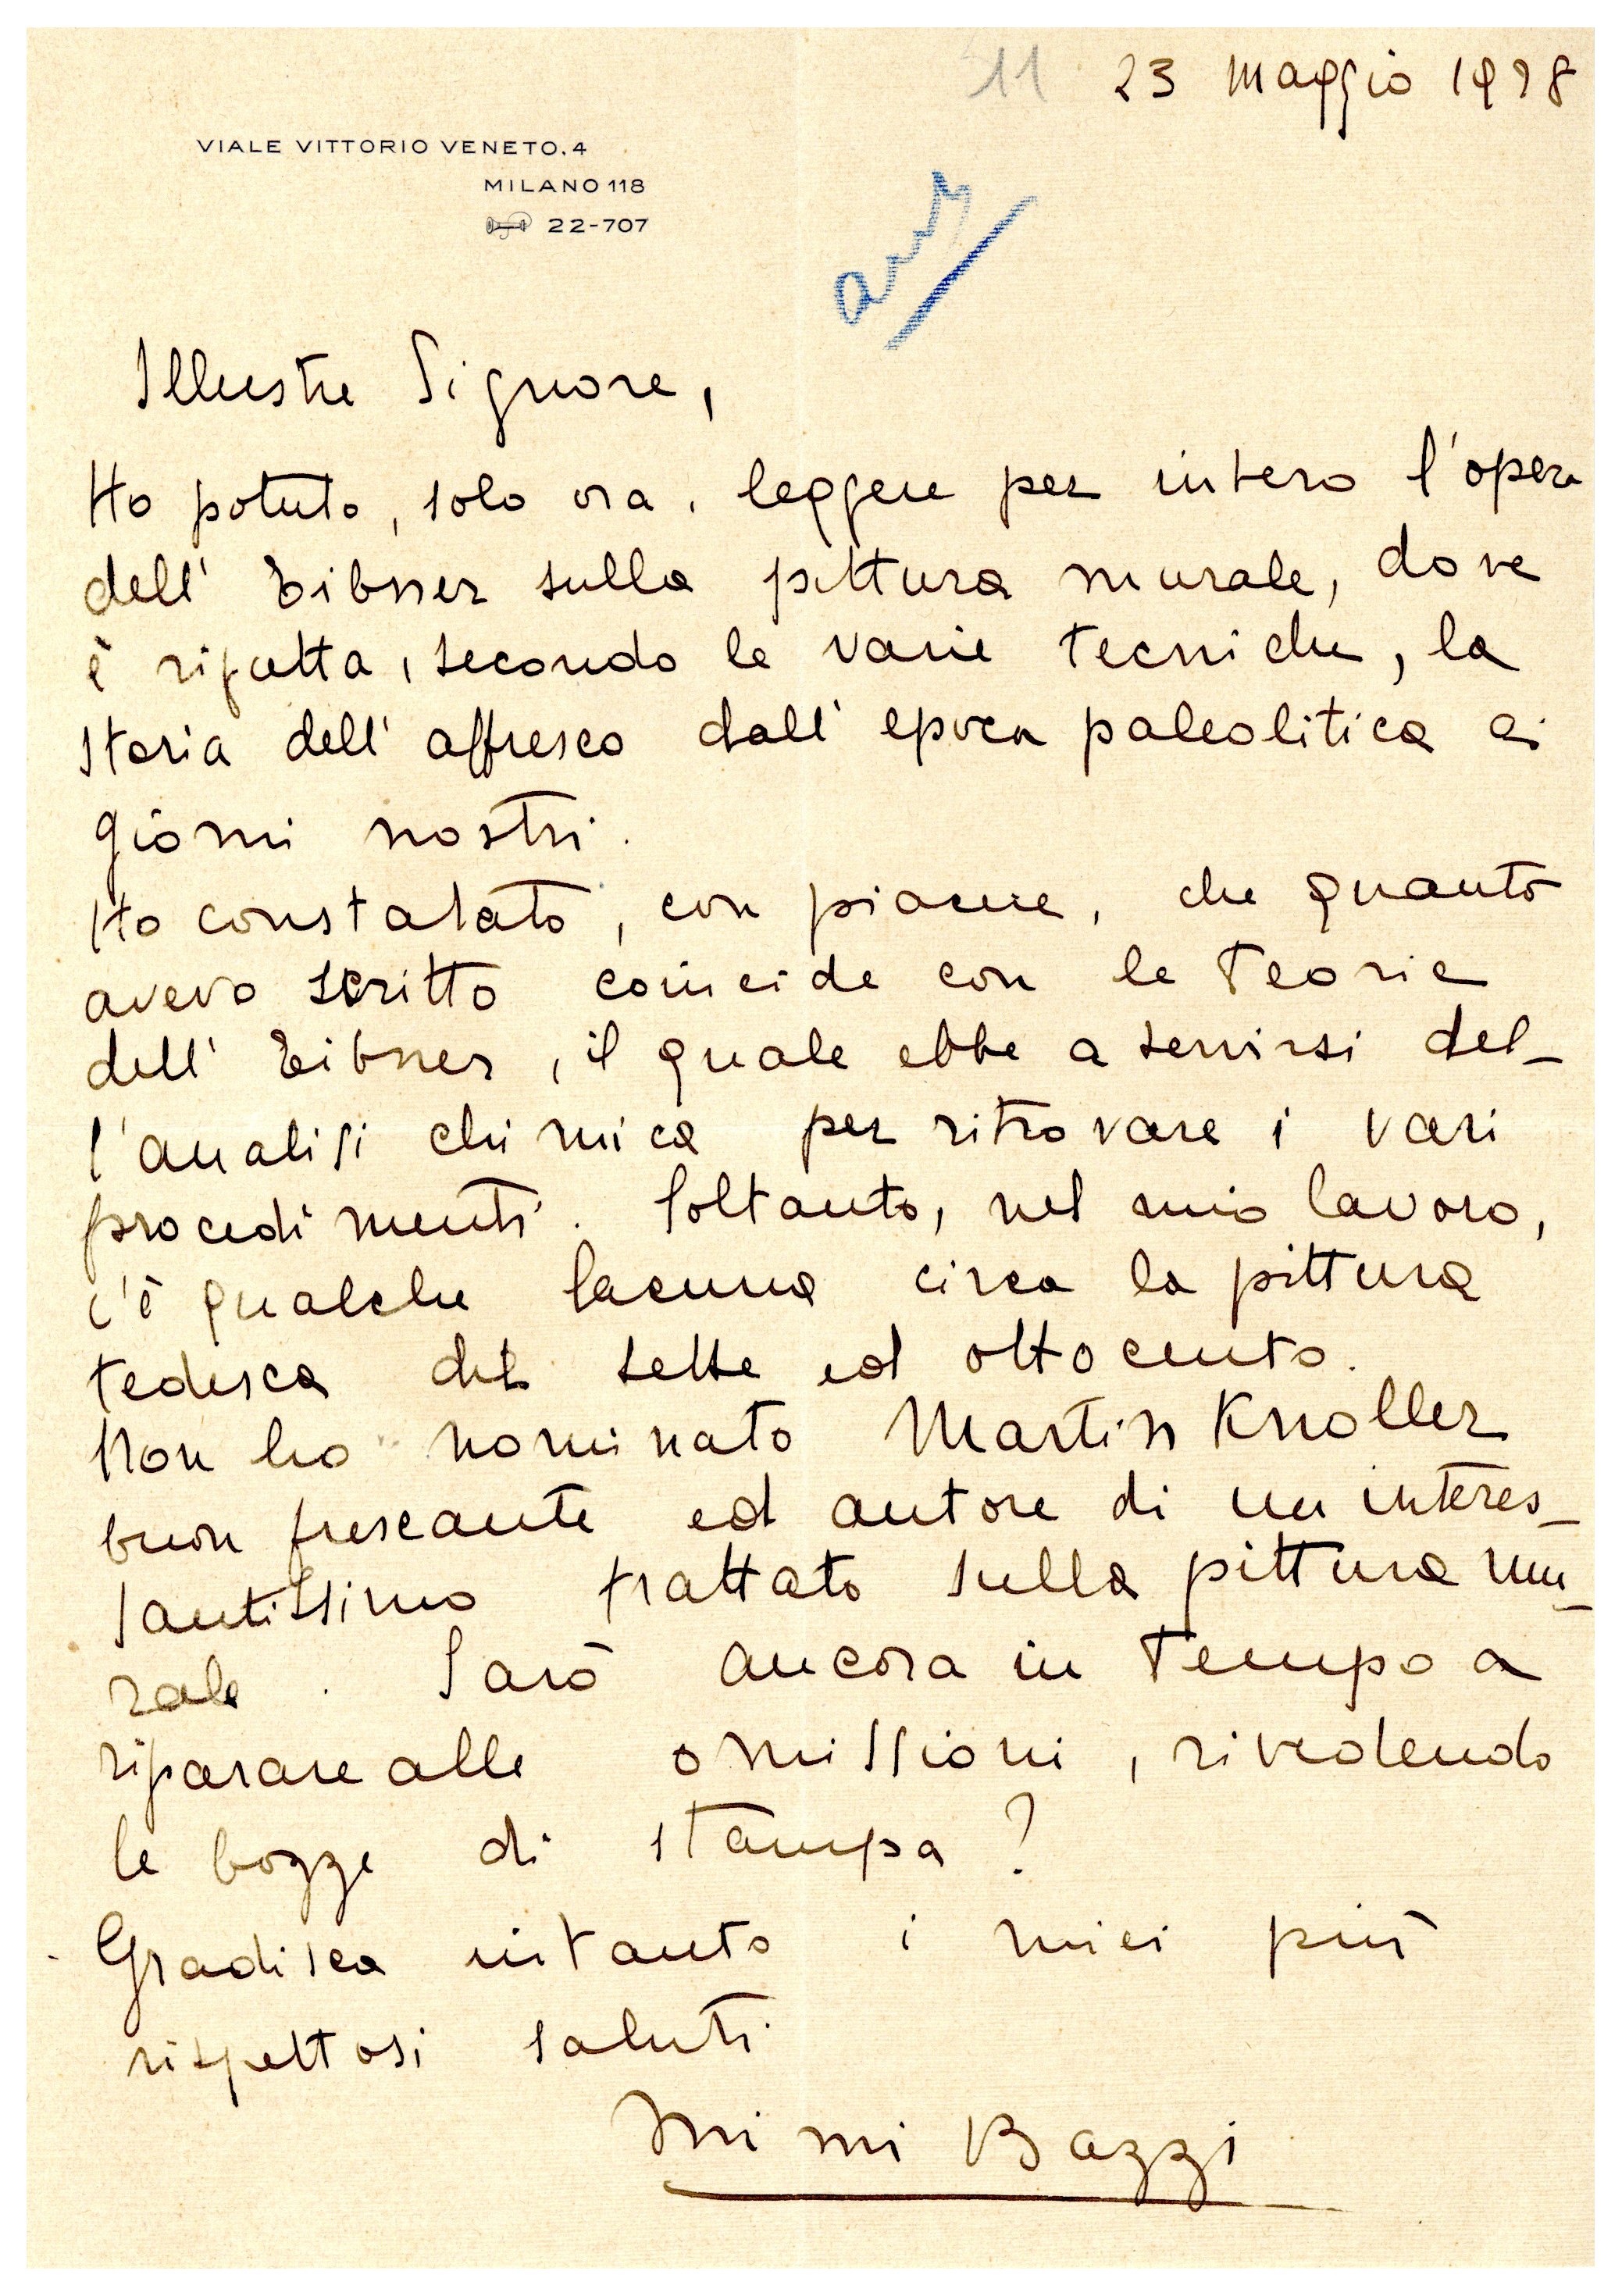 11 23 Maggio 1928
VIALE VITTORIO VENETO. 4
MILANO 118
22-707
Illustre Signore,
Ho potuto, solo ora, leggere per intero l'opera
dell' Eibner sulla pittura murale, dove
è rifatta, secondo le varie tecniche, la
storia dell' affresco dall' epoca paleolitica ai
giorni nostri.
Ho constatato, con piacere, che quanto
avevo scritto coincide con le teorie
dell' Eibner, il quale ebbe a servirsi del-
l'analisi chimica per ritrovare i vari
procedimenti. Soltanto, nel mio lavoro,
c'è qualche lacuna circa la pittura
tedesca del sette ed ottocento.
Non ho nominato Martin Knoller
buon frescante ed autore di un interes-
santissimo trattato sulla pittura mu-
rale. Sarò ancora in tempo a
riparare alle omissioni, rivedendo
le bozze di stampa?
Gradisca intanto i miei più
rispettosi saluti
Mimi Bazzi